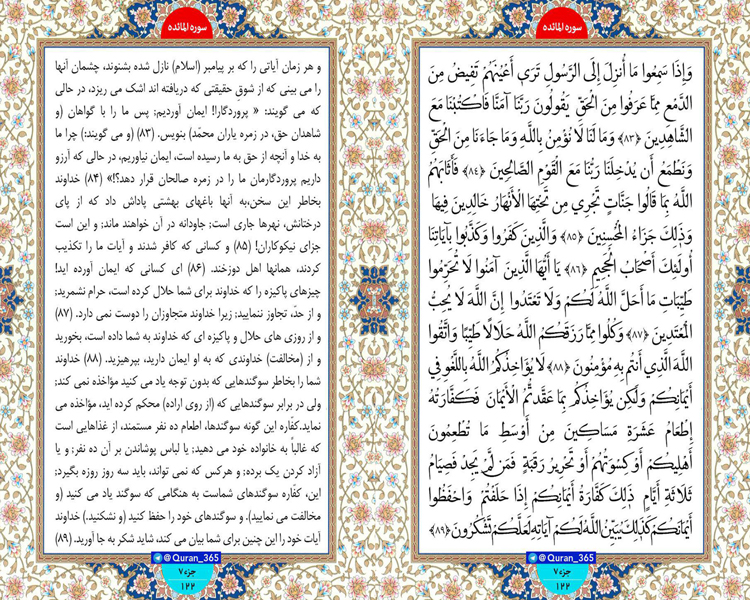 سوره المائده
وَإِذَا سَمِعُوا مَا أُنزِلَ إِلَى الرَّسُولِ تَرَى أَعْيُنَهُمْ تَفِيضُ مِنَ
الدَّمْعِ مِمَّا عَرَفُوا مِنَ الْحَقِّ يَقُولُونَ رَبَّنَا آمَنَّا فَاكْتُبْنَا مَعَ
الشَّاهِدِينَ ﴿٨٣﴾ وَمَا لَنَا لَا نُؤْمِنُ بِاللَّهِ وَمَا جَاءَنَا مِنَ الْحَقِّ
وَنَطْمَعُ أَن يُدْخِلَنَا رَبُّنَا مَعَ الْقَوْمِ الصَّالِحِينَ ﴿٨٤﴾ فَأَثَابَهُمُ
اللَّهُ بِمَا قَالُوا جَنَّاتٍ تَجْرِي مِن تَحْتِهَا الْأَنْهَارُ خَالِدِينَ فِيهَا
وَذَٰلِكَ جَزَاءُ الْمُحْسِنِينَ ﴿٨٥﴾ وَالَّذِينَ كَفَرُوا وَكَذَّبُوا بِآيَاتِنَا
أُولَٰئِكَ أَصْحَابُ الْجَحِيمِ ﴿٨٦﴾ يَا أَيُّهَا الَّذِينَ آمَنُوا لَا تُحَرِّمُوا
طَيِّبَاتِ مَا أَحَلَّ اللَّهُ لَكُمْ وَلَا تَعْتَدُوا إِنَّ اللَّهَ لَا يُحِبُّ
الْمُعْتَدِينَ ﴿٨٧﴾ وَكُلُوا مِمَّا رَزَقَكُمُ اللَّهُ حَلَالًا طَيِّبًا وَاتَّقُوا
اللَّهَ الَّذِي أَنتُم بِهِ مُؤْمِنُونَ ﴿٨٨﴾ لَا يُؤَاخِذُكُمُ اللَّهُ بِاللَّغْوِ فِي
أَيْمَانِكُمْ وَلَٰكِن يُؤَاخِذُكُم بِمَا عَقَّدتُّمُ الْأَيْمَانَ فَكَفَّارَتُهُ
إِطْعَامُ عَشَرَةِ مَسَاكِينَ مِنْ أَوْسَطِ مَا تُطْعِمُونَ
أَهْلِيكُمْ أَوْ كِسْوَتُهُمْ أَوْ تَحْرِيرُ رَقَبَةٍ فَمَن لَّمْ يَجِدْ فَصِيَامُ
ثَلَاثَةِ أَيَّامٍ ذَٰلِكَ كَفَّارَةُ أَيْمَانِكُمْ إِذَا حَلَفْتُمْ وَاحْفَظُوا
أَيْمَانَكُمْ كَذَٰلِكَ يُبَيِّنُ اللَّهُ لَكُمْ آيَاتِهِ لَعَلَّكُمْ تَشْكُرُونَ ﴿٨٩﴾
@Quran_365
جزء ۷
۱۲۲
سوره المائده
و هر زمان آیاتی را که بر پیامبر (اسلام) نازل شده بشنوند، چشمان آنها
را می بینی که از شوقِ حقیقتی که دریافته اند اشک می ریزد، در حالی
که می گویند: « پروردگارا! ایمان آوردیم; پس ما را با گواهان (و
شاهدان حق، در زمره یاران محمّد) بنویس. (۸۳) (و می گویند:) چرا ما
به خدا و آنچه از حق به ما رسیده است، ایمان نیاوریم، در حالی که آرزو
داریم پروردگارمان ما را در زمره صالحان قرار دهد؟!» (۸۴) خداوند
بخاطر این سخن،به آنها باغهای بهشتی پاداش داد که از پای
درختانش، نهرها جاری است; جاودانه در آن خواهند ماند; و این است
جزای نیکوکاران! (۸۵) و کسانی که کافر شدند و آیات ما را تکذیب
کردند، همانها اهل دوزخند. (۸۶) ای کسانی که ایمان آورده اید!
چیزهای پاکیزه را که خداوند برای شما حلال کرده است، حرام نشمرید;
و از حدّ، تجاوز ننمایید; زیرا خداوند متجاوزان را دوست نمی دارد. (۸۷)
و از روزی های حلال و پاکیزه ای که خداوند به شما داده است، بخورید
و از (مخالفت) خداوندی که به او ایمان دارید، بپرهیزید. (۸۸) خداوند
شما را بخاطر سوگندهایی که بدون توجه یاد می کنید مؤاخذه نمی کند;
ولی در برابر سوگندهایی که (از روی اراده) محکم کرده اید، مؤاخذه می
نماید.کفّاره این گونه سوگندها، اطعام ده نفر مستمند، از غذاهایی است
که غالباً به خانواده خود می دهید; یا لباس پوشاندن بر آن ده نفر; و یا
آزاد کردن یک برده; و هرکس که نمی تواند، باید سه روز روزه بگیرد;
این، کفّاره سوگندهای شماست به هنگامی که سوگند یاد می کنید (و
مخالفت می نمایید). و سوگندهای خود را حفظ کنید (و نشکنید.) خداوند
آیات خود را این چنین برای شما بیان می کند، شاید شکر به جا آورید. (۸۹)
@Quran_365
جزء ۷
۱۲۲